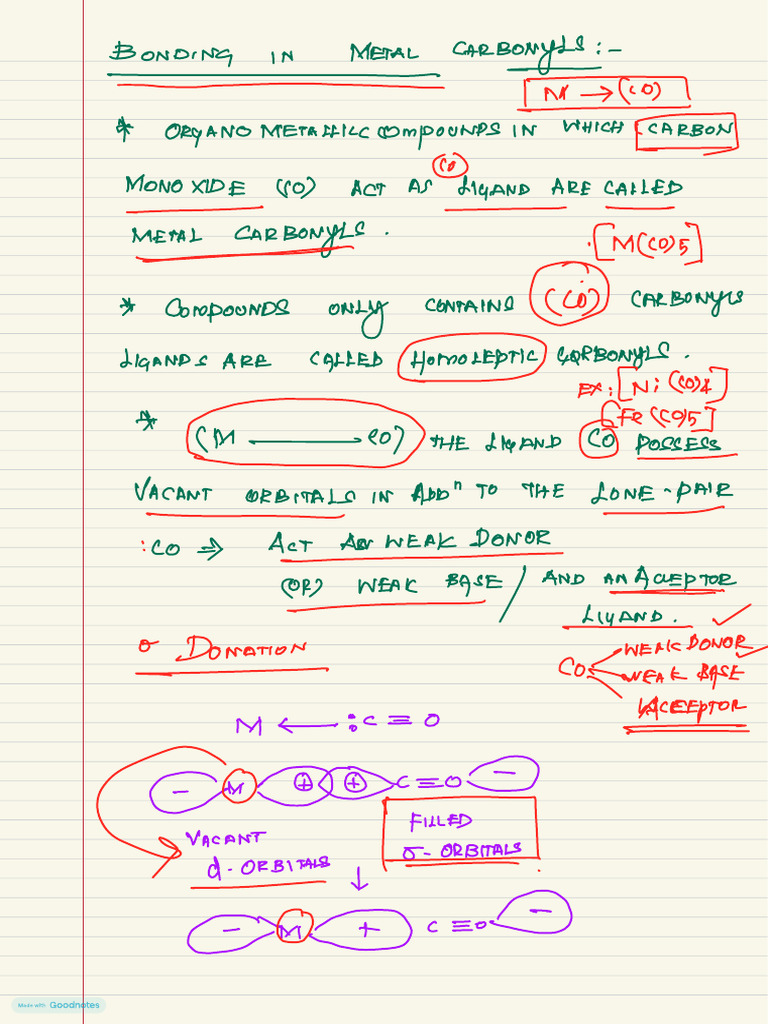 BONDING IN METAL CARBONYLS :-
M → (CO)
* ORGANO METALLIC COMPOUNDS IN WHICH CARBON
CO
MONOXIDE (CO) ACT AS LIGAND ARE CALLED
METAL CARBONYLS .
[M(CO)5]
* COMPOUNDS ONLY CONTAINS (CO) CARBONYLS
LIGANDS ARE CALLED HOMOLEPTIC CARBONYLS .
EX: [Ni(CO)4]
[Fe(CO)5]
* (M ⟶ CO) THE LIGAND CO POSSESS
VACANT ORBITALS IN ADDⁿ TO THE LONE-PAIR
:CO ⇒ ACT AS WEAK DONOR
(OR) WEAK BASE / AND AN ACEPTOR
LIGAND. ✓
σ DONATION
CO WEAK DONOR ✓
WEAK BASE
ACCEPTOR
M ⟵ :C≡O
− M + + C≡O −
VACANT
d-ORBITALS
FILLED
σ-ORBITALS
↓
− M + C≡O −
Made with Goodnotes